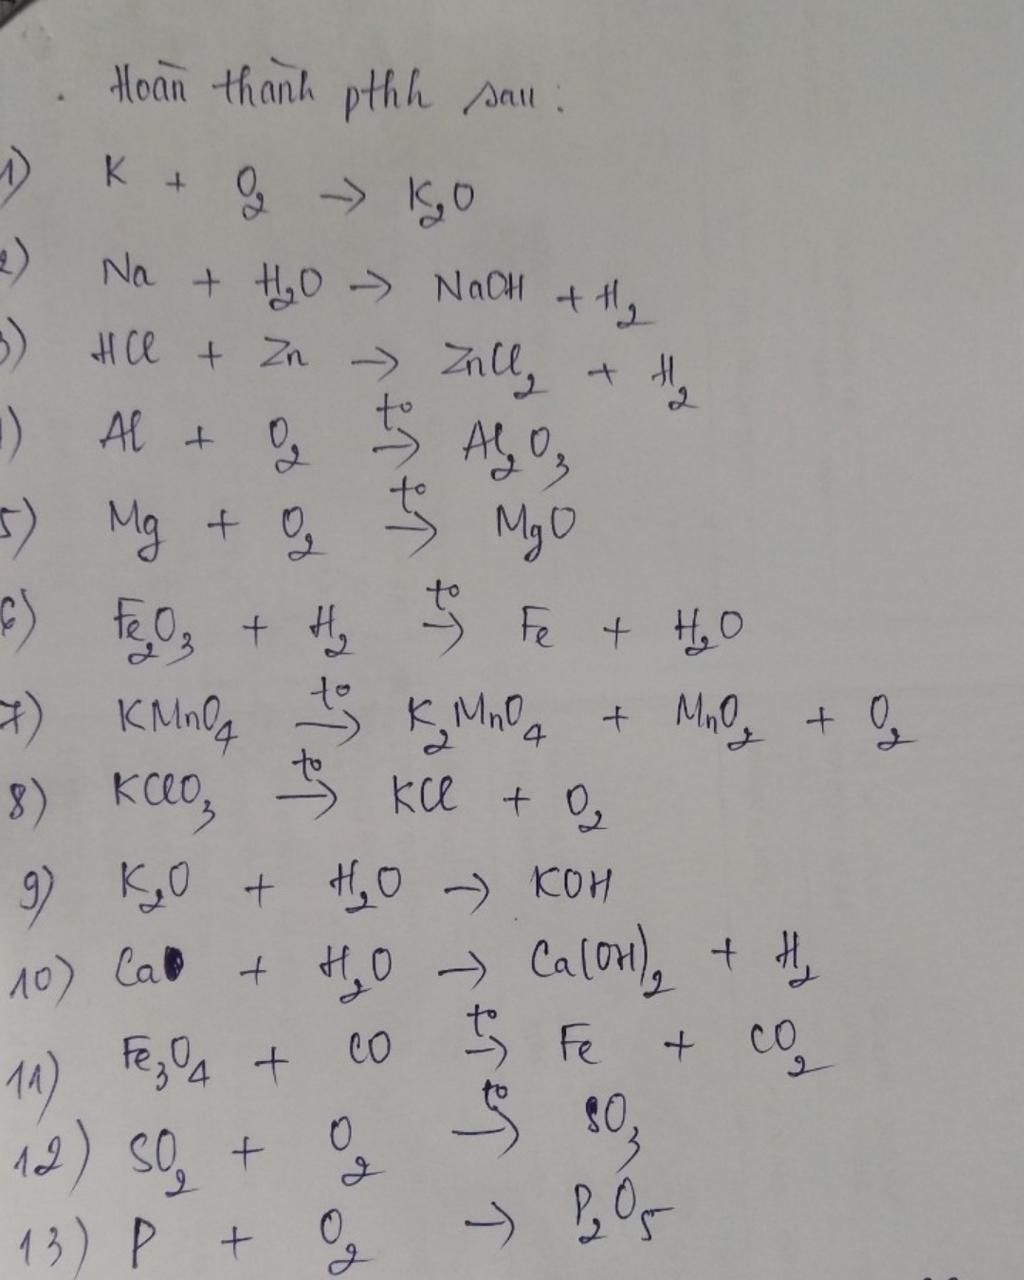 . Hoàn thành pthh sau :
1) K + O₂ → K₂O
2) Na + H₂O → NaOH + H₂
3) HCl + Zn → ZnCl₂ + H₂
) Al + O₂ →(t°) Al₂O₃
5) Mg + O₂ →(t°) MgO
6) Fe₂O₃ + H₂ →(t°) Fe + H₂O
7) KMnO₄ →(t°) K₂MnO₄ + MnO₂ + O₂
8) KClO₃ →(t°) KCl + O₂
9) K₂O + H₂O → KOH
10) Ca + H₂O → Ca(OH)₂ + H₂
11) Fe₃O₄ + CO →(t°) Fe + CO₂
12) SO₂ + O₂ →(t°) SO₃
13) P + O₂ → P₂O₅